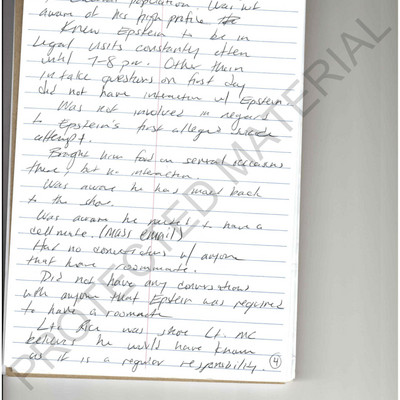 general population. Was not
aware of his high profile
Knew Epstein to be in
legal visits constantly often
until 7-8 pm. Other than
intake questions on first day
did not have interaction w/ Epstein.
Was not involved in regard
to Epstein's first alleged suicide
attempt.
Brought him food on several occasions
there, but no interaction.
Was aware he has moved back
to the shoe.
Was aware he needed to have a
cellmate. (mass email)
Had no conversations w/ anyone
that have roommate.
Did not have any conversations
with anyone that Epstein was required
to have a roommate
Lt. was shoe Lt. MC
believes he would have known
as it is a regular responsibility.
4
PROTECTED MATERIAL